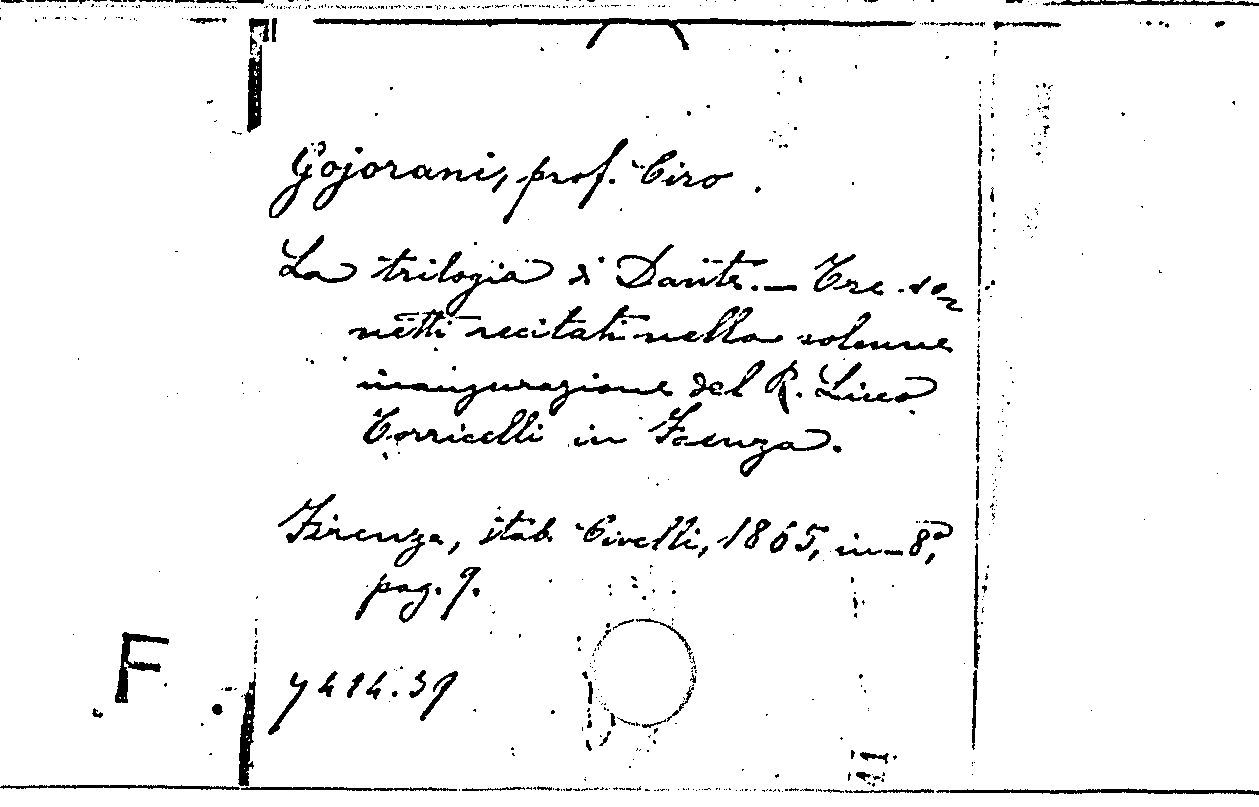 Gojorani, prof. Ciro.
La trilogia di Dante. — Tre so-
netti recitati nella solenne
inaugurazione del R. Liceo
Torricelli in Faenza.
Firenze, stab. Civelli, 1865, in-8°,
pag. 9.
F
7414.39